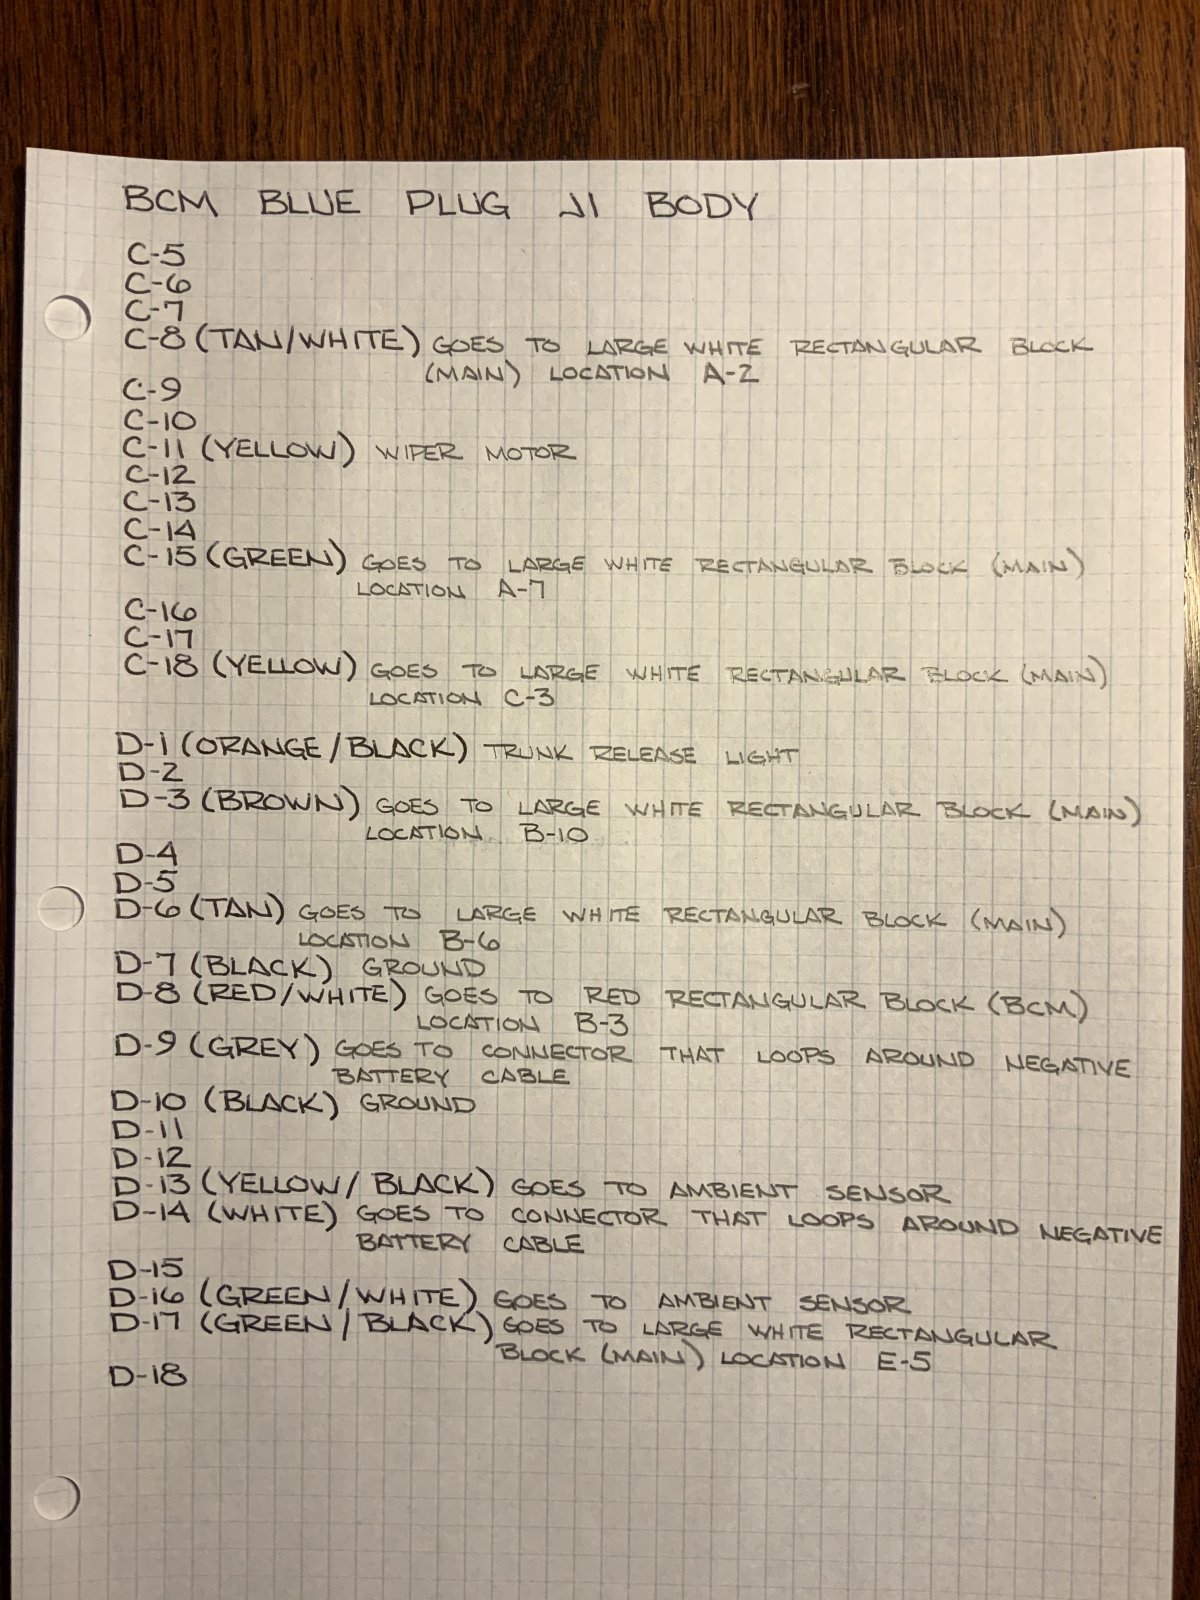 BCM BLUE PLUG J1 BODY
C-5
C-6
C-7
C-8 (TAN/WHITE) GOES TO LARGE WHITE RECTANGULAR BLOCK
(MAIN) LOCATION A-2
C-9
C-10
C-11 (YELLOW) WIPER MOTOR
C-12
C-13
C-14
C-15 (GREEN) GOES TO LARGE WHITE RECTANGULAR BLOCK (MAIN)
LOCATION A-7
C-16
C-17
C-18 (YELLOW) GOES TO LARGE WHITE RECTANGULAR BLOCK (MAIN)
LOCATION C-3
D-1 (ORANGE/BLACK) TRUNK RELEASE LIGHT
D-2
D-3 (BROWN) GOES TO LARGE WHITE RECTANGULAR BLOCK (MAIN)
LOCATION B-10
D-4
D-5
D-6 (TAN) GOES TO LARGE WHITE RECTANGULAR BLOCK (MAIN)
LOCATION B-6
D-7 (BLACK) GROUND
D-8 (RED/WHITE) GOES TO RED RECTANGULAR BLOCK (BCM)
LOCATION B-3
D-9 (GREY) GOES TO CONNECTOR THAT LOOPS AROUND NEGATIVE
BATTERY CABLE
D-10 (BLACK) GROUND
D-11
D-12
D-13 (YELLOW/BLACK) GOES TO AMBIENT SENSOR
D-14 (WHITE) GOES TO CONNECTOR THAT LOOPS AROUND NEGATIVE
BATTERY CABLE
D-15
D-16 (GREEN/WHITE) GOES TO AMBIENT SENSOR
D-17 (GREEN/BLACK) GOES TO LARGE WHITE RECTANGULAR
BLOCK (MAIN) LOCATION E-5
D-18